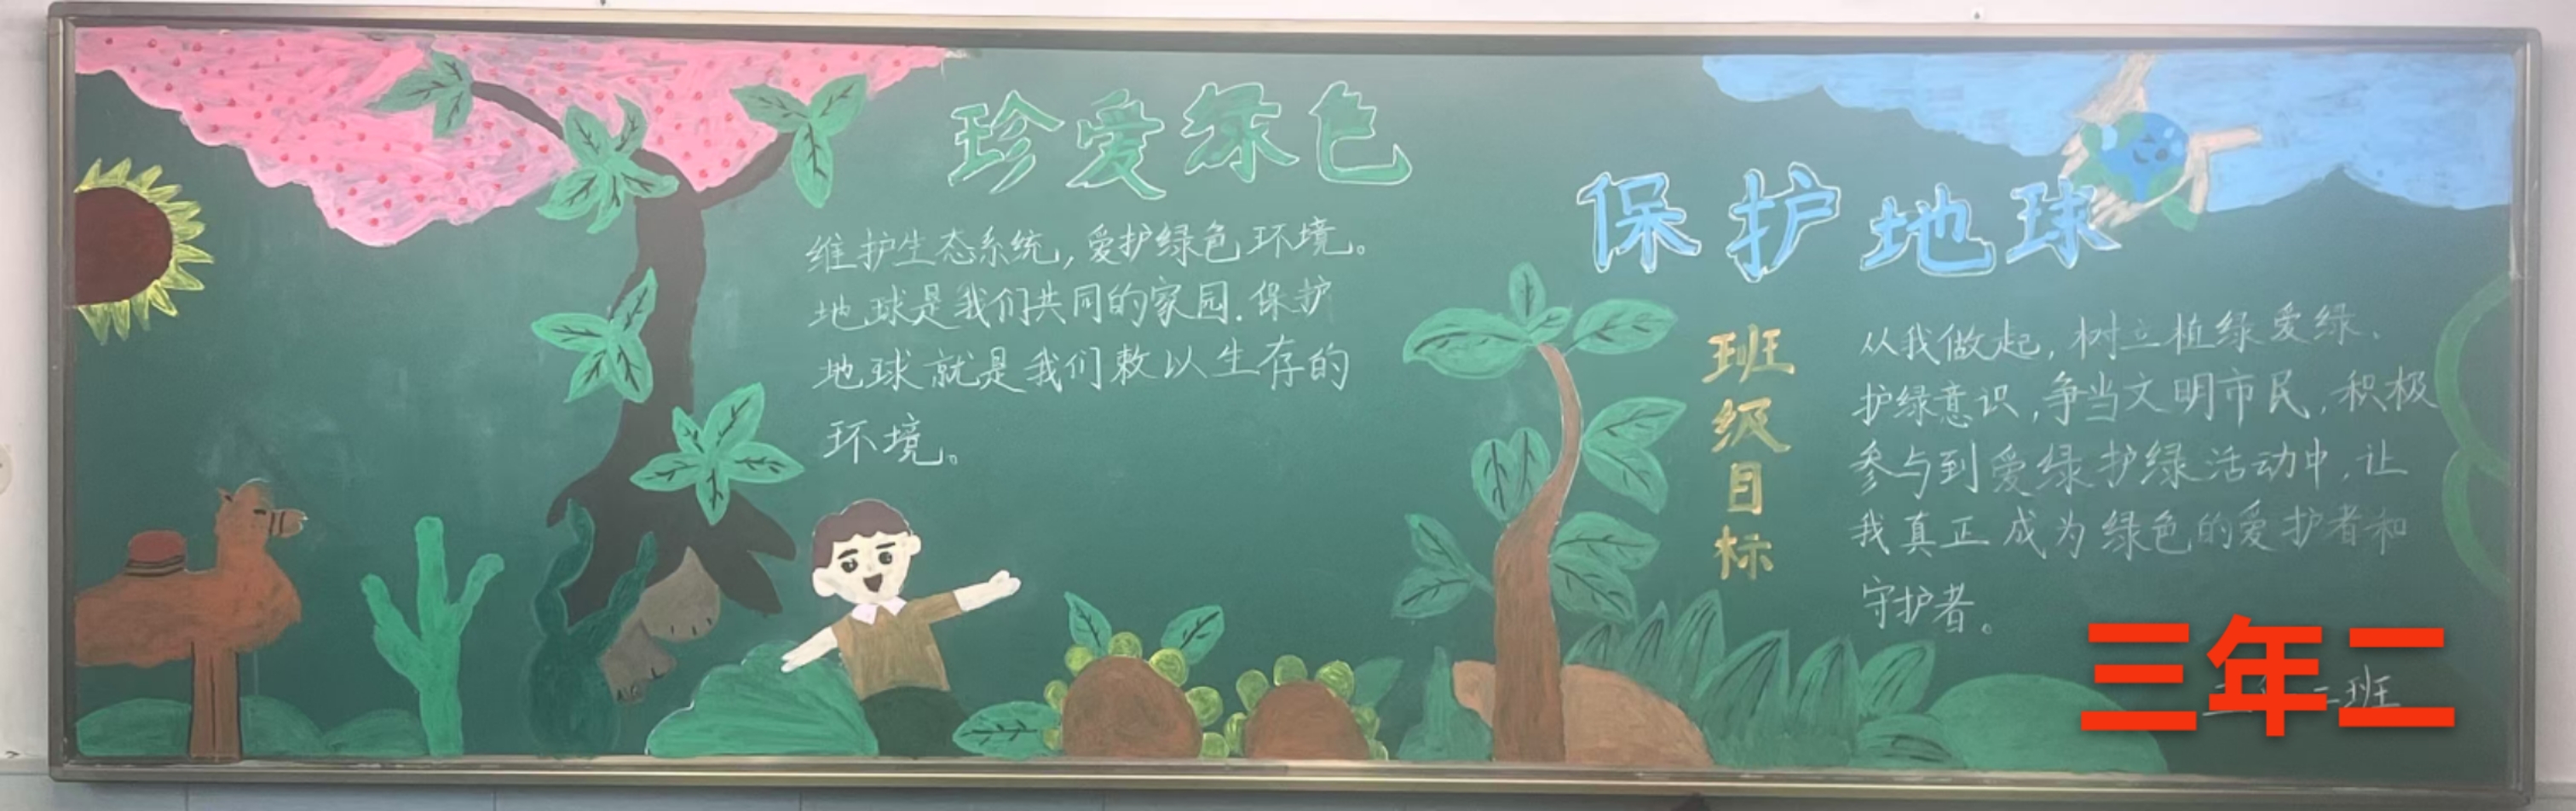 珍爱绿色
维护生态系统,爱护绿色环境。
地球是我们共同的家园.保护
地球就是我们敕以生存的
环境。
保护地球
班级目标
从我做起,树立植绿爱绿、
护绿意识,争当文明市民,积极
参与到爱绿护绿活动中,让
我真正成为绿色的爱护者和
守护者。
三年二
班